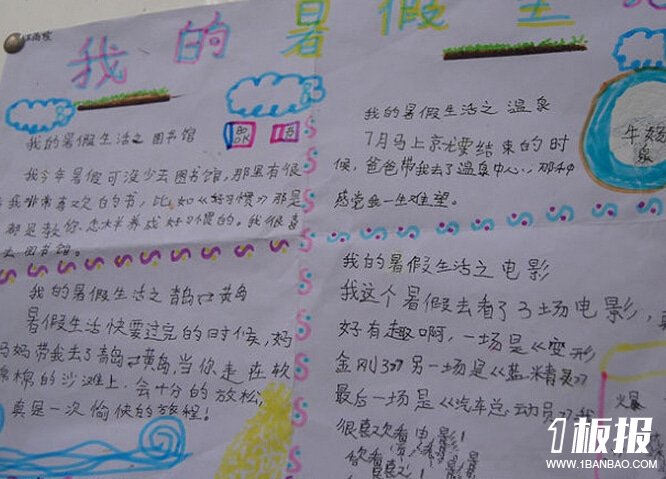 我的暑假生
我的暑假生活之 图书馆
BOOK
我今年暑假可没少去图书馆，那里有很
我非常喜欢的书，比如《好习惯》那是
都是教你怎样养成好习惯的。我很喜
去图书馆。
我的暑假生活之 温泉
7月马上就要结束的时
候，爸爸带我去了温泉中心，那种
感觉我一生难望。
泉
我的暑假生活之青岛⇄黄岛
暑假生活快要过完的日时候，妈
妈带我去了青岛⇄黄岛，当你走在软
棉棉的沙滩上，会十分的放松，
真是一次愉快的旅程！
我的暑假生活之电影
我这个暑假去看了3场电影，真
好有趣啊，一场是《变形
金刚3》另一场是《蓝精灵》
最后一场是《汽车总动员》我
很喜欢看电影！
火暴
1板报
WWW.1BANBAO.COM